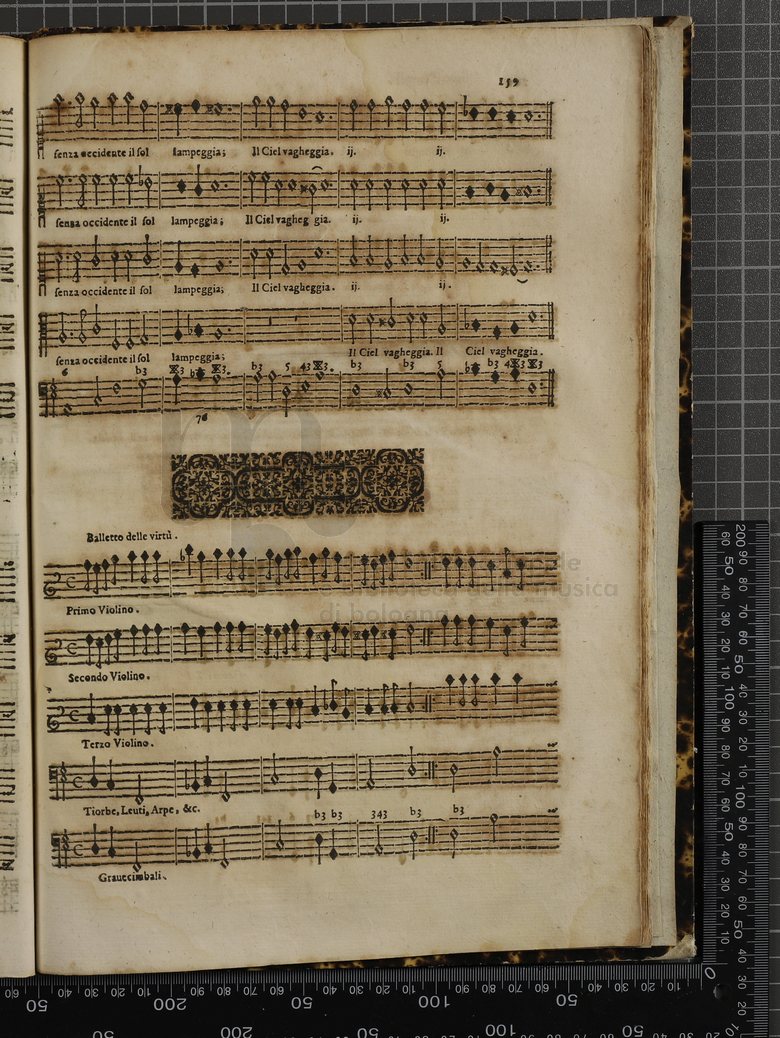 159
senza occidente il sol lampeggia; Il Ciel vagheggia. ij. ij.
senza occidente il sol lampeggia; Il Ciel vagheg gia. ij. ij.
senza occidente il sol lampeggia; Il Ciel vagheggia. ij. ij.
senza occidente il sol lampeggia; Il Ciel vagheggia. Il Ciel vagheggia.
6 b3 X3 b X3. b3 5 43 X3. b3 b3 5 b b3 4X3 X3
76
Balletto delle virtù.
Primo Violino.
Secondo Violino.
Terzo Violino.
Tiorbe, Leuti, Arpe, &c.
b3 b3 343 b3 b3
Grauecimbali.
biblioteca della musica
di bologna